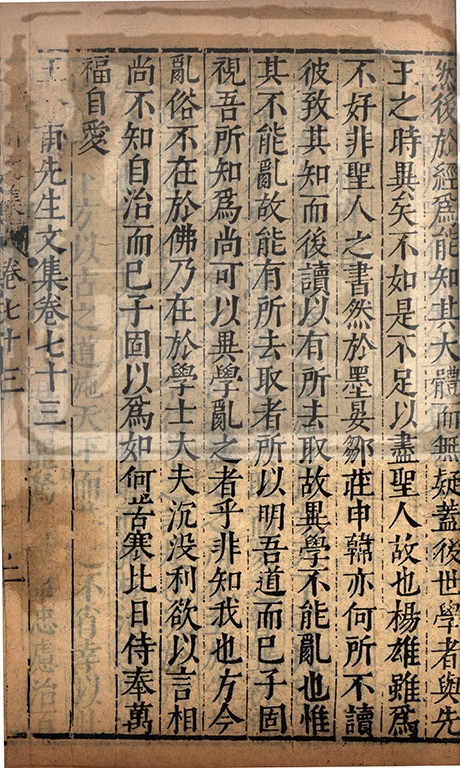 然後於經爲能知其大體而無疑蓋後世學者與先
王之時異矣不如是不足以盡聖人故也楊雄雖爲
不好非聖人之書然於墨晏鄒莊申韓亦何所不讀
彼致其知而後讀以有所去取故異學不能亂也惟
其不能亂故能有所去取者所以明吾道而已子固
視吾所知爲尚可以異學亂之者乎非知我也方今
亂俗不在於佛乃在於學士大夫沉没利欲以言相
尚不知自治而已子固以爲如何苦寒比日侍奉萬
福自愛
王 甫先生文集卷七十三
集 卷七十三